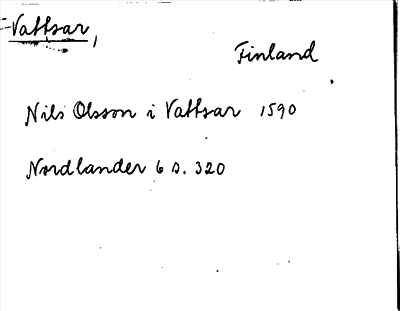 Vattsar,
Finland
Nils Olsson i Vattsar 1590
Nordlander 6 s. 320